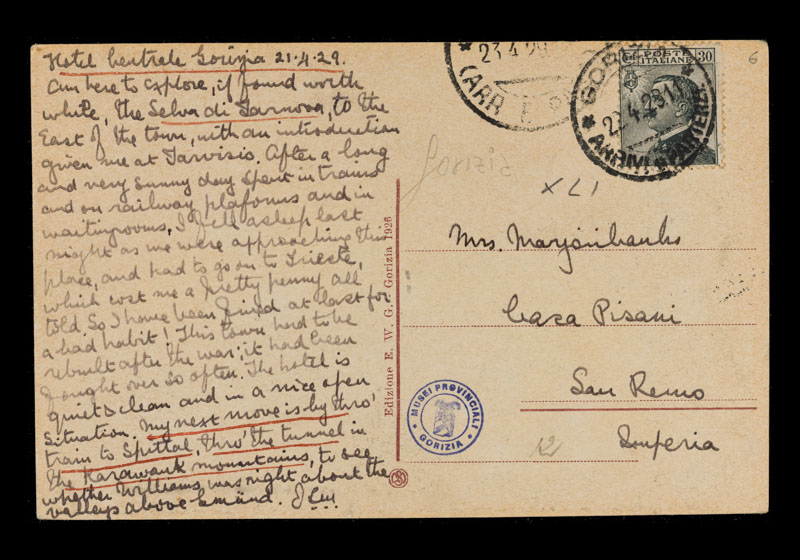 Hotel Centrale Gorizia 21.4.29.
Am here to explore, if found worth
while, the Selva di Tarnova, to the
East of the town, with an introduction
given me at Tarvisio. After a long
and very sunny day spent in trains
and on railway platforms and in
waitingrooms, I fell asleep last
night as we were approaching this
place, and had to go on to Trieste,
which cost me a pretty penny all
told. So I have been fined at last for
a bad habit! This town had to be
rebuilt after the war: it had been
fought over so often. The hotel is
quiet & clean and in a nice open
situation. My next move is by thro'
train to Spittal, thro' the tunnel in
the Karawank mountains, to see
whether Williams was right about the
valleys above Gmünd.
Edizione E. W. G. Gorizia 1926
23 4 29
ARR
POSTE ITALIANE
30
GORIZIA
ARRIVI
6
Gorizia
XLI
Mrs. Marjoribanks
Casa Pisani
San Remo
Imperia
MUSEI PROVINCIALI
GORIZIA
12